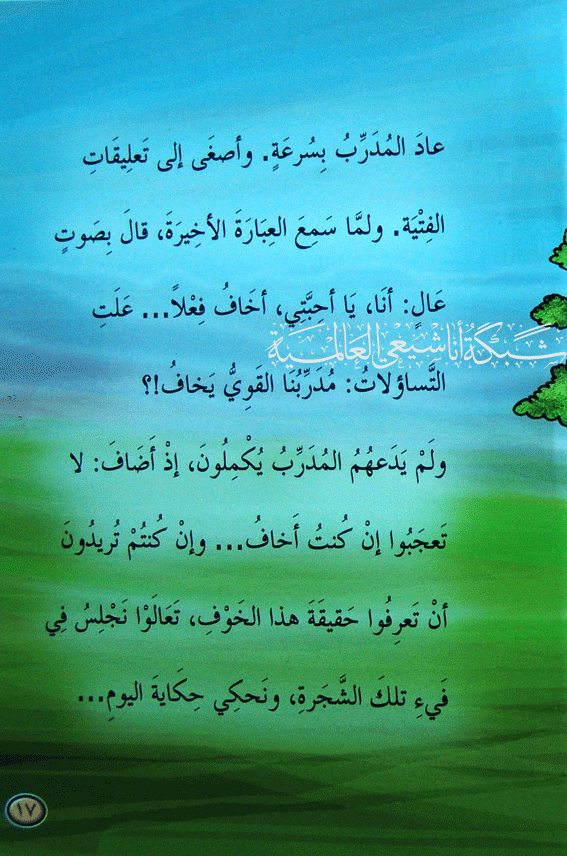 عادَ المُدَرِّبُ بِسُرعَةٍ. وأصغَى إلى تَعلِيقَاتِ
الفِتْيَة. ولمَّا سَمِعَ العِبَارَةَ الأخِيرَةَ، قالَ بِصَوتٍ
عَالٍ: أنَا، يَا أحِبَّتِي، أخَافُ فِعْلاً... عَلَتِ
شبكة أنا شيعي العالمية
التَّساؤلاتُ: مُدَرِّبُنَا القَوِيُّ يَخافُ!؟
ولَمْ يَدَعهُمُ المُدَرِّبُ يُكْمِلُونَ، إذْ أَضَافَ: لا
تَعجَبُوا إنْ كُنتُ أَخافُ... وإنْ كُنتُمْ تُريدُونَ
أنْ تَعرِفُوا حَقيقَةَ هذا الخَوْفِ، تَعَالَوْا نَجْلِسُ فِي
فَيءِ تلكَ الشَّجَرةِ، ونَحكِي حِكَايةَ اليومِ...
١٧